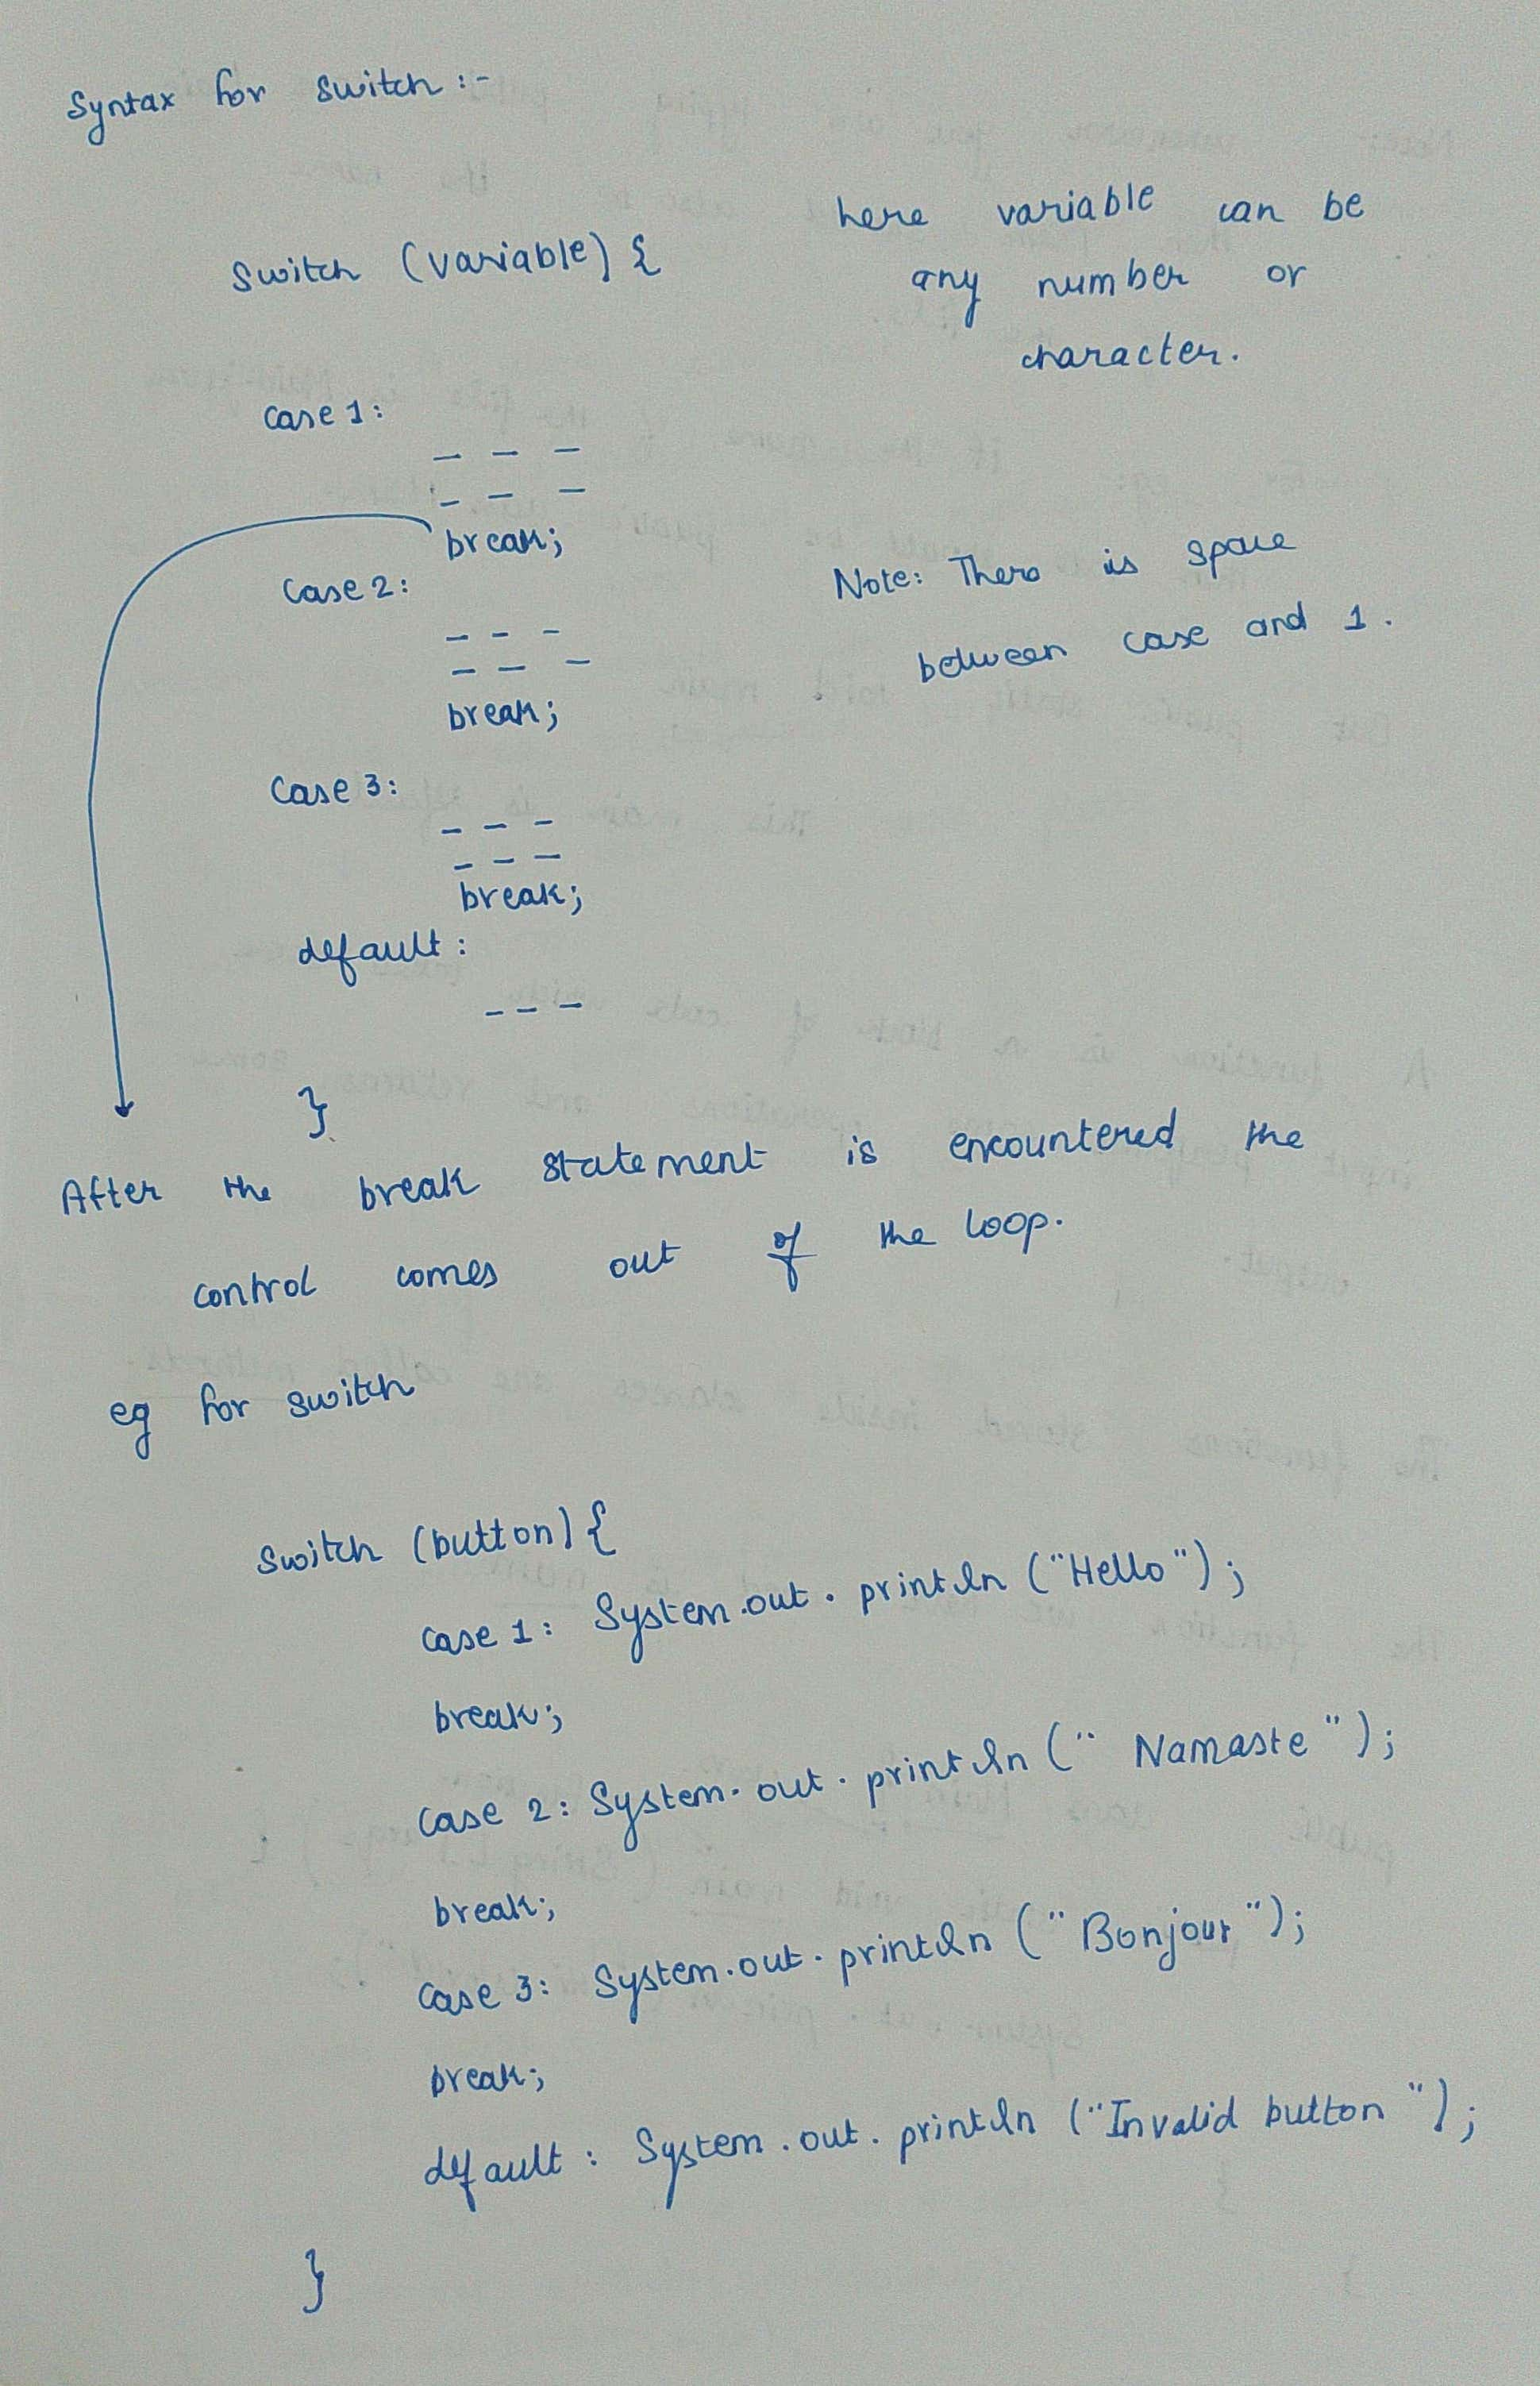 Syntax for switch :-
switch (variable) {
here variable can be
any number or
character.
case 1:
_ _ _
_ _ _
break;
case 2:
_ _ _
_ _ _
break;
Note: There is space
between case and 1.
case 3:
_ _ _
_ _ _
break;
default :
_ _ _
}
After the break statement is encountered the
control comes out of the loop.
eg for switch
switch (button) {
case 1: System.out.println ("Hello");
break;
case 2: System.out.println (" Namaste ");
break;
case 3: System.out.println (" Bonjour ");
break;
default : System.out.println ("Invalid button ");
}